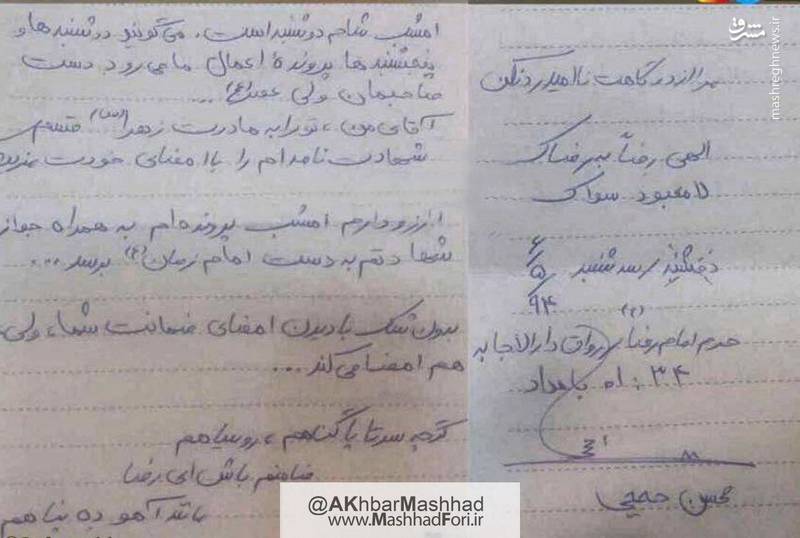 امشب شام دوشنبه است. می‌گویند دوشنبه‌ها و
پنجشنبه‌ها پرونده اعمال ما می‌رود دست
صاحبمان ولی عصر(عج)...
آقای من، تو را به مادرت زهرا(س) قسم
شهادت نامه ام را با امضای خودت مزین
آرزو دارم امشب پرونده‌ام به همراه جواز
شهادتم به دست امام زمان(ع) برسد...
بدون شک با دیدن امضای ضمانت شما، ولی
هم امضا می‌کند...
گرچه سر تا پا گناهم، رو سیاهم
ضامنم باش ای رضا
باشد آهو ده پناهم
مرا از درگاهت ناامید رد نکن
الهی رضاً برضاک
لا معبود سواک
سه شنبه
۶/۵/۹۴
حرم امام رضا(ع) رواق دارالاجابه
۳۴ : ۱۵ بامداد
محسن حججی
مشرق
mashreghnews.ir
@AKhbarMashhad
www.MashhadFori.ir